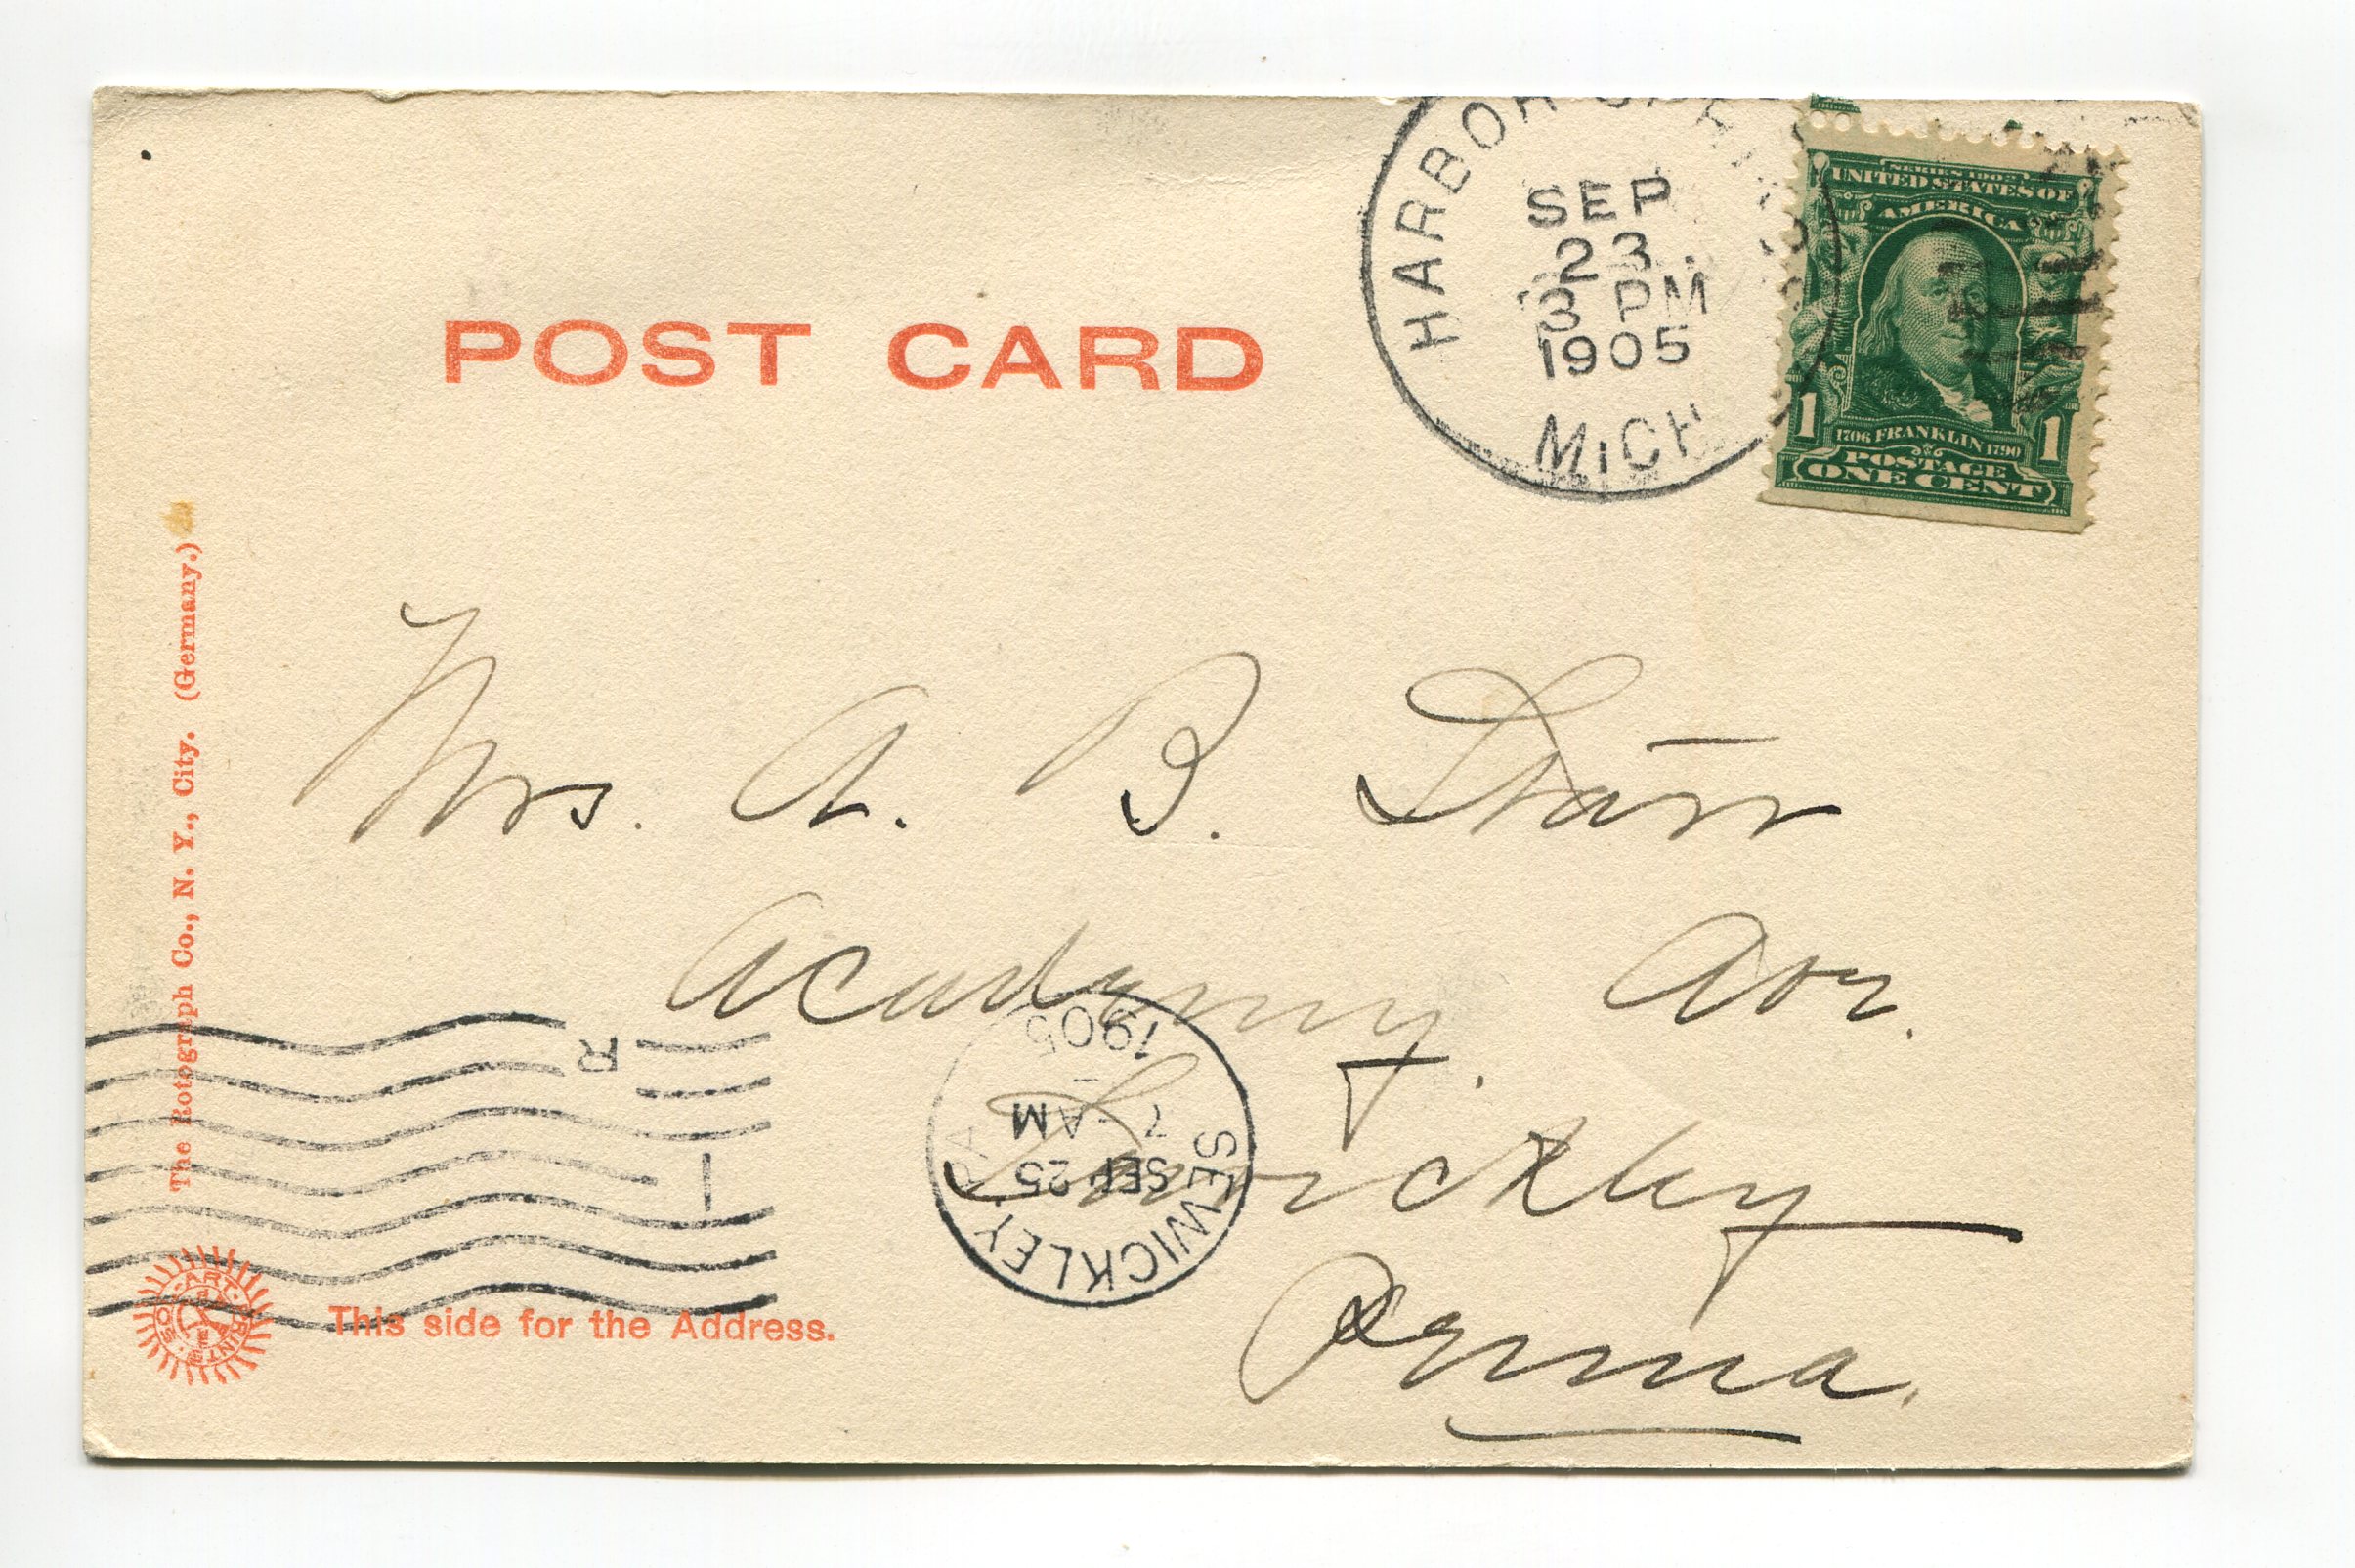 POST CARD
HARBOR SPRINGS
SEP
23
3 PM
1905
MICH
SERIES 1902
UNITED STATES OF
AMERICA
1 1706 FRANKLIN 1790 1
POSTAGE
ONE CENT
Mrs. A. B. Starr
Academy Ave.
Sewickley
Penna.
SEWICKLEY PA
SEP 25
7 - AM
1905
R
1
The Rotograph Co., N. Y., City. (Germany.)
SOL ART PRINTS
This side for the Address.